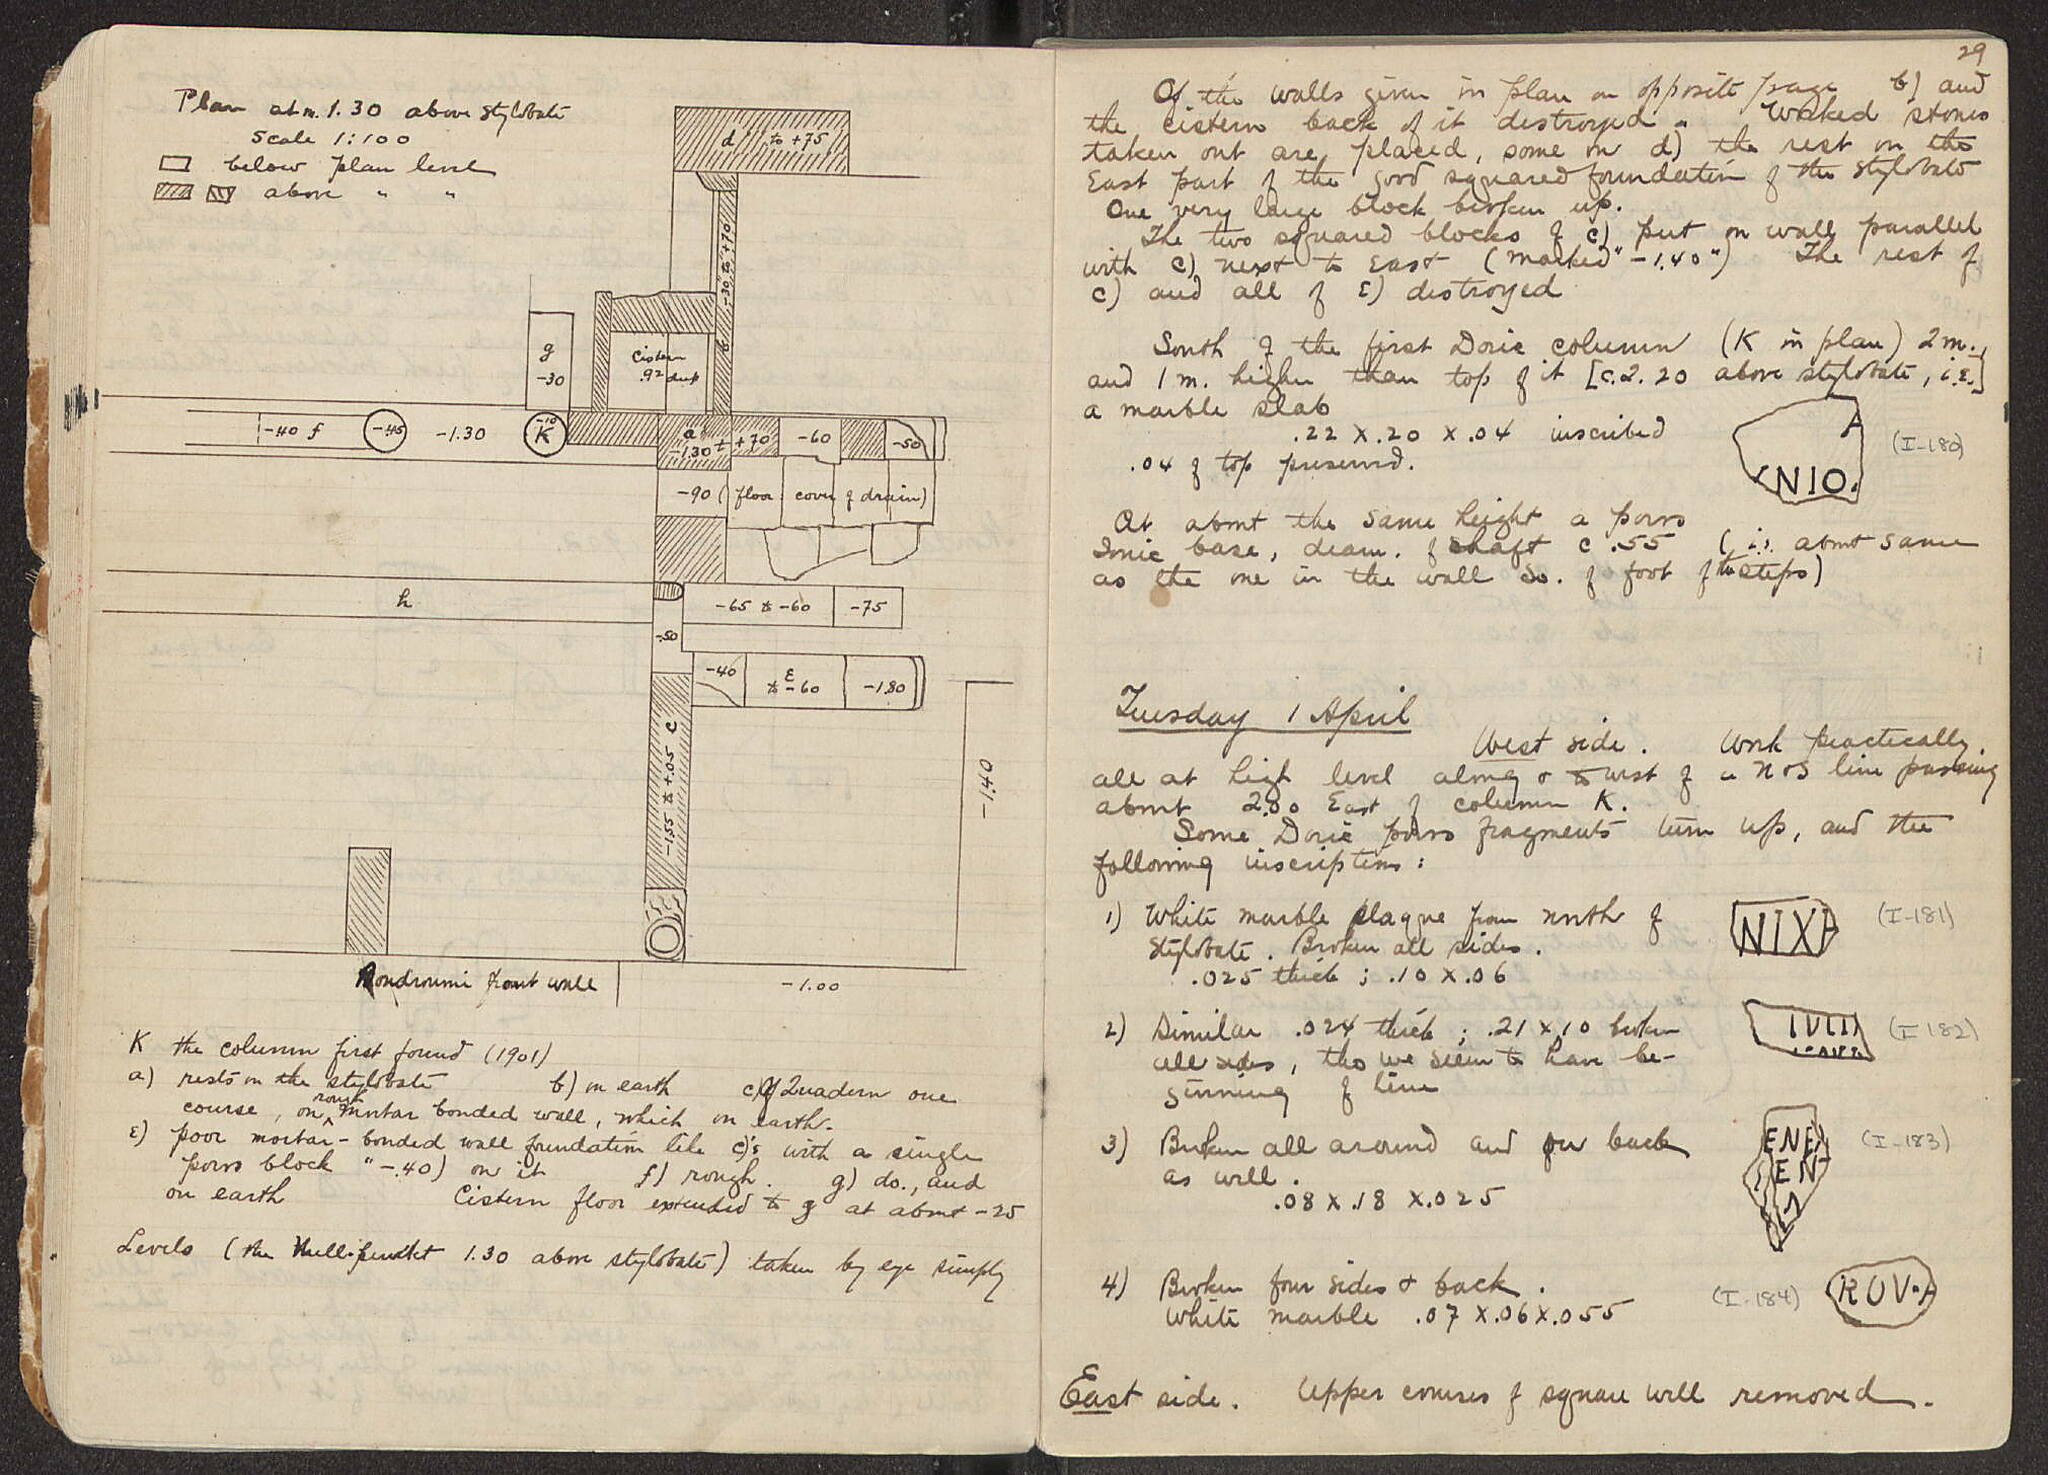 Plan at m. 1.30 above stylobate
Scale 1:100
below plan level
above " "
d to +75
-30 to +70
b
g
-30
Cistern
.92 deep
-40 f
-.45
-1.30
-10
K
a
-1.30 ±
+70
-60
-50
-90 (floor cover of drain)
h
-65 to -60
-75
-.50
-40
ε
to -60
-1.80
-1.55 to +.05 c
-1.40
front wall
-1.00
K the column first found (1901)
a) rests on the stylobate b) on earth c) of Quadern one
course, on rough mortar bonded wall, which on earth.
ε) poor mortar-bonded wall foundation like c)'s with a single
poros block "-.40) on it f) rough. g) do., and
on earth Cistern floor extended to g at about -25
Levels (the Null-punkt 1.30 above stylobate) taken by eye simply
29
Of the walls given in plan on opposite page b) and
the cistern back of it destroyed. Worked stones
taken out are placed, some on d) the rest on the
East part of the good squared foundation of the stylobate
One very large block broken up.
The two squared blocks of c) put on wall parallel
with c) next to East (marked "-1.40") The rest of
c) and all of ε) destroyed
South of the first Doric column (K in plan) 2 m.,
and 1 m. higher than top of it [c. 2.20 above stylobate, i.e.]
a marble slab
.22 X .20 X .04 inscribed
.04 of top preserved.
A
NIO.
(I-180)
At about the same height a poros
Ionic base, diam. of shaft c .55 (is about same
as the one in the wall So. of foot of the steps)
Tuesday 1 April
West side. Work practically
all at high level along & to west of a N & S line passing
about 2.00 East of column K.
Some Doric poros fragments turn up, and the
following inscriptions:
1) White marble plaque from north of
stylobate. Broken all sides.
.025 thick; .10 X .06
NIXA
(I-181)
2) Similar .024 thick; .21 X 10 broken
all sides, tho we seem to have be-
ginning of line
(I-182)
3) Broken all around and on back
as well.
.08 X .18 X .025
ENE
EN
(I-183)
4) Broken four sides & back.
White marble .07 X .06 X .055
(I-184)
ROV·A
East side. Upper courses of square well removed.